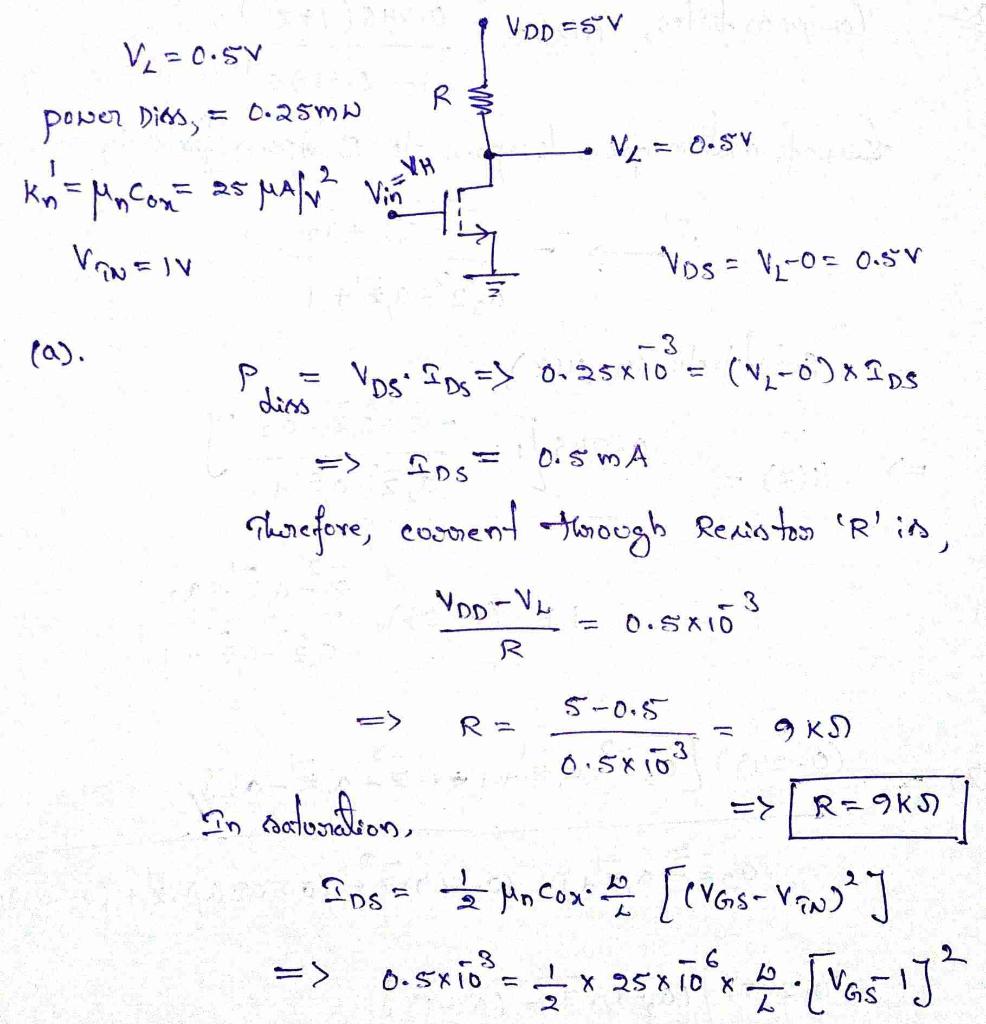 VDD = 5V
VL = 0.5V
R
power Diss, = 0.25mW
VL = 0.5V
Kn' = μnCox = 25 μA/V² Vin = VH
VTN = 1V
VDS = VL-0 = 0.5V
(a).
Pdiss = VDS. IDS => 0.25x10^-3 = (VL-0) x IDS
=> IDS = 0.5 mA
Therefore, current through Resistor 'R' is,
(VDD - VL)/R = 0.5x10^-3
=> R = (5-0.5)/(0.5x10^-3) = 9 KΩ
=> R = 9KΩ
In saturation,
IDS = 1/2 μnCox. W/L [(VGS - VTN)²]
=> 0.5x10^-3 = 1/2 x 25x10^-6 x W/L . [VGS-1]²